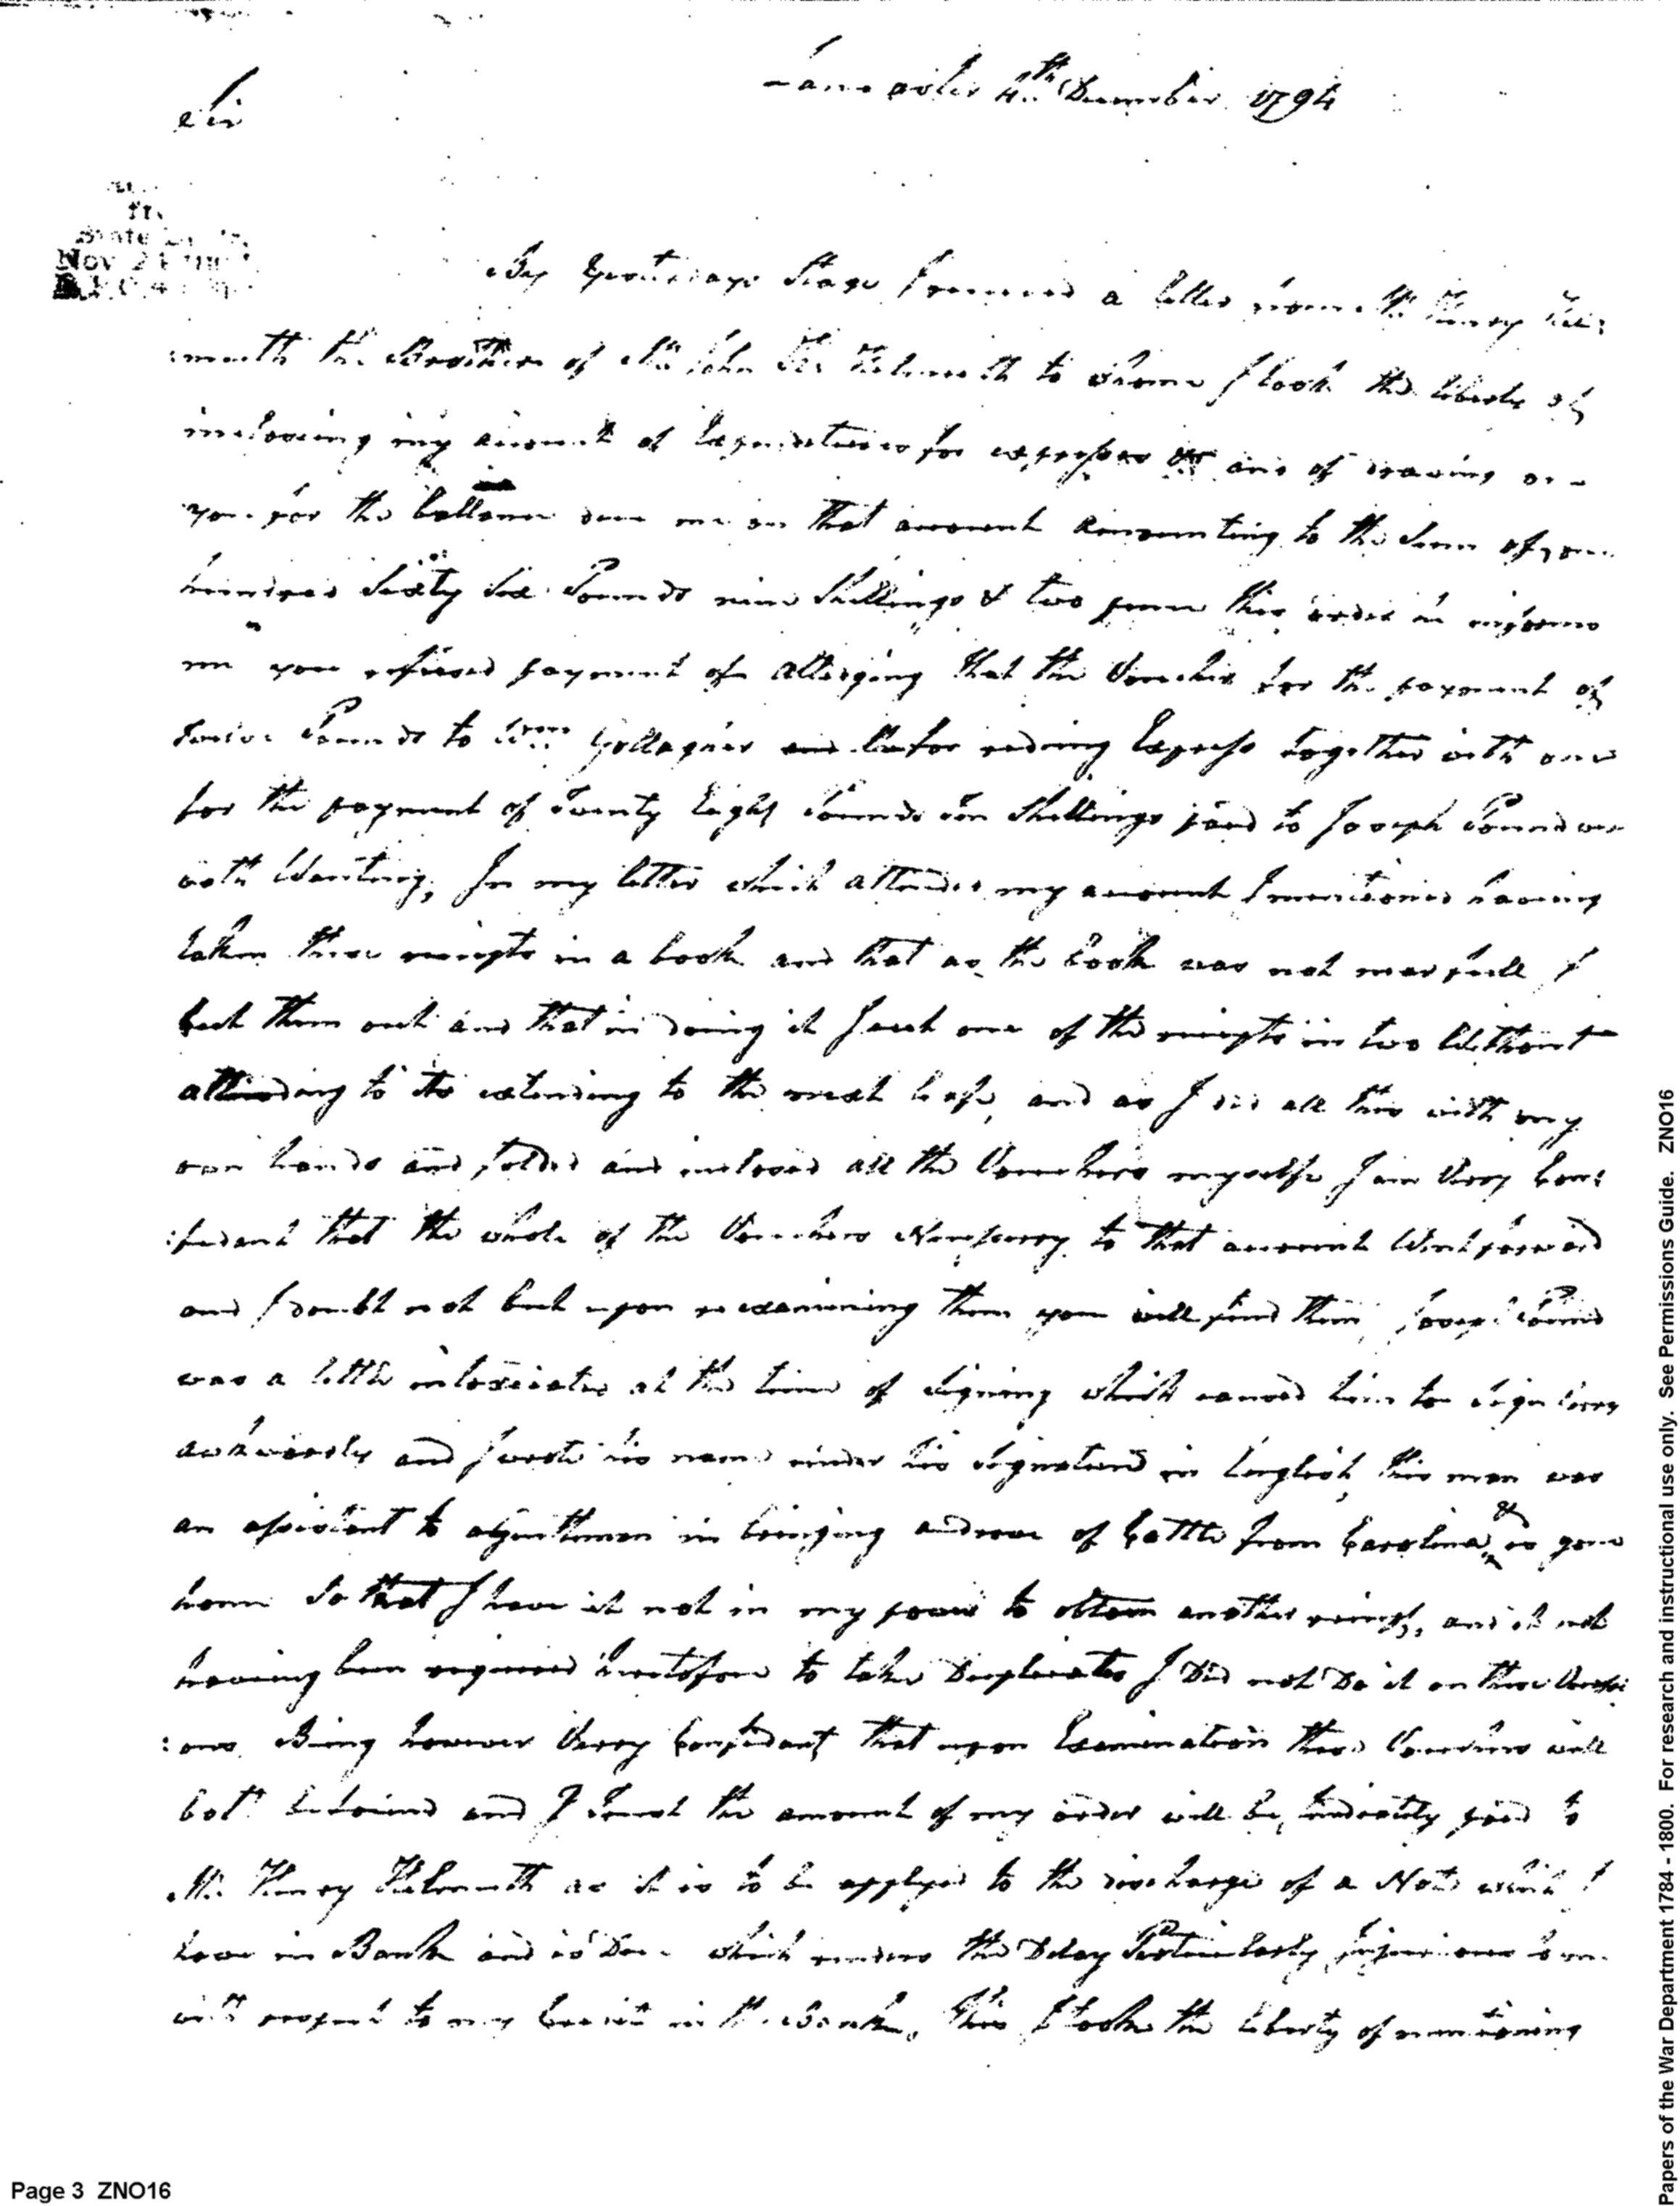 Lancaster 4th December 1794
Sir
Nov 2
By Yesterdays Stage I received a letter from Mr. Henry Hel:
:muth the Brother of Mr John Hr. Helmuth to whome I took the liberty of
inclosing my account of Expenditures for expresses and of drawing on
you for the ballance due me on that account amounting to the Sum of one
hundred Sixty Six Pounds nine Shillings & two pence this order he informs
me you refused payment of alledging that the Voucher for the payment of
twelve Pounds to Wm Gollagher for rideing Express together with one
for the payment of twenty Eight Pounds ten Shillings paid to Joseph Pound were
both Wanting, In my letter which attended my account I mentioned haveing
taken these receipts in a book and that as the book was not near full I
cut them out and that in doing it I cut one of the receipts in two Without
attending to its extending to the next leafe, and as I did all this with my
own hands and folded and inclosed all the Vouchers myselfe I am Verry Con:
:fidant that the whole of the Vouchers Nessessery to that account Went forward
and I doubt not but upon reexamining them you will find them, Joseph Pound
was a little intoxicated at the time of Signing which caused him to Sign Verry
awkwardly and I wrote his name under his Signature in English, this man was
an assistant to a Gentleman in bringing a drove of Cattle from Carolina & is gone
home So that I have it not in my power to obtain another receipt, and it not
haveing been required heretofore to take Duplicates I Did not Do it on these Occasi
:ons. Being however Verry Confidant that upon Examination these Vouchers will
both be found and I trust the amount of my order will be paid to
Mr. Henry Helmuth as it is to be applyed to the discharge of a Note which I
have in Bank and is Due which renders the Delay Particularly Injurious to me
with respect to my Credit in the Bank, this I took the liberty of mentioning
Page 3 ZNO16
Papers of the War Department 1784 - 1800. For research and instructional use only. See Permissions Guide. ZNO16